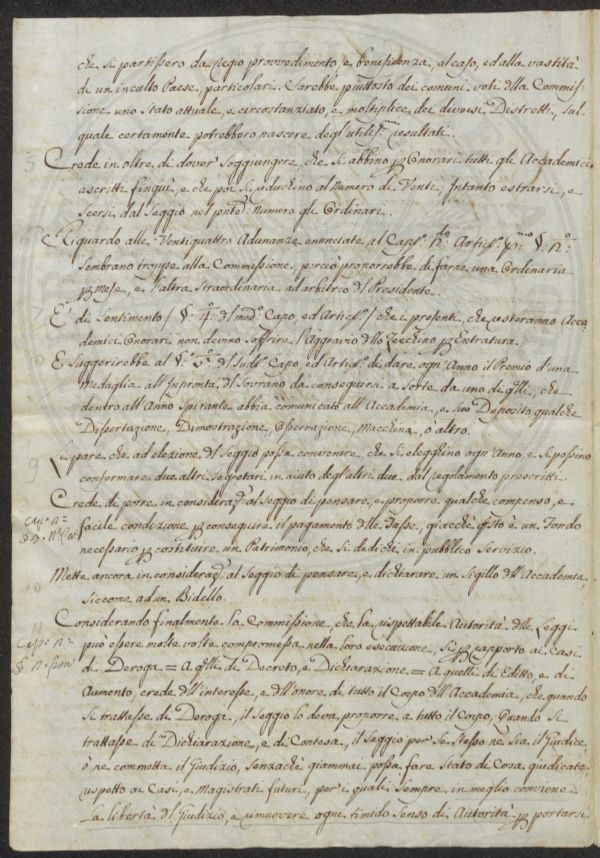 che si partissero da Regio provvedimento, e beneficenza, al caso, ed alla vastità
di un inculto Paese, particolari. Sarebbe piuttosto dei comuni voti dlla Commis-
sione uno Stato attuale, e circostanziato, e moltiplice dei diversi Distretti, sul
quale certamente potrebbero nascere degl'utiliss.mi resultati.
5 Crede in oltre di dover soggiungere, che si abbino p Onorari tutti gli Accademici
ascritti finquì, e che poi si riduchino al Numero di Venti, Intanto estrarsi, e
Scersi dal Seggio nel pnte Numero gli Ordinari.
6 Riguardo alle Ventiquattro Adunanze enunciate al Cap.o n.do Artic.o p.mo §. n.o:
Sembrano troppe alla Commissione, perciò proporrebbe di farne una Ordinaria
p Mese, e l'altra Straordinaria ad arbitrio dl Presidente.
7 E' di Sentimento / §: 4.o dl med.o Capo, ed Artic.o / che i presenti, che resteranno Acca-
demici Onorari non devino soffrire l'Aggravio dllo Zecchino p Entratura.
8 E suggerirebbe al §.o 5.o dl sud.o Capo, ed Artic.o di dare ogn'Anno il Premio d'una
Medaglia all'Impronta dl Sovrano da conseguirsi a Sorte da uno di qlli, che
dentro all'Anno Spirante abbia comunicato all'Accademia, e suo Deposito qualche
Dissertazione, Dimostrazione, Osservazione, Macchina, o altro.
9 Le pare che ad elezione dl Seggio possa convenire che si elegghino ogn'Anno, e si possino
confermare due altri Segretari in aiuto degl'altri due dal regolamento prescritti.
Crede di porre in consideraz.e al Seggio di pensare, e proporre qualche compenso, e
facile condizione p conseguire il pagamento dlle Tasse, giacchè qsto è un Fondo
necessario p costituire un Patrimonio, che si dedichi in pubblico Servizio.
10 Mette ancora in consideraz.e al Seggio di pensare, e dichiarare un Sigillo dll'Accademia,
siccome ad un Bidello.
11 Considerando finalmente la Commissione, che la rispettabile Autorità dlle Leggi
Cap.o n.o
può essere molte volte compromessa nella loro esecuzione, si p rapporto ai Casi
di Deroga = A qlli di Decreto, e Dichiarazione = A quelli di Editto, e di
Aumento, crede dll'interesse, e dll'onore di tutto il Corpo dll'Accademia, che quando
si trattasse di Deroga, il Seggio lo deva proporre a tutto il Corpo, Quando si
trattasse di Dichiarazione, e di Contesa, il Seggio per Se Stesso ne Sia il Giudice,
ò ne commetta il Giudizio, senzachè giammai possa fare Stato di Cosa giudicata,
rispetto ai Casi, e Magistrati futuri, per i quali Sempre in meglio conviene
la libertà dl Giudizio, e rimuovere ogni timido Senso di Autorità p portarsi